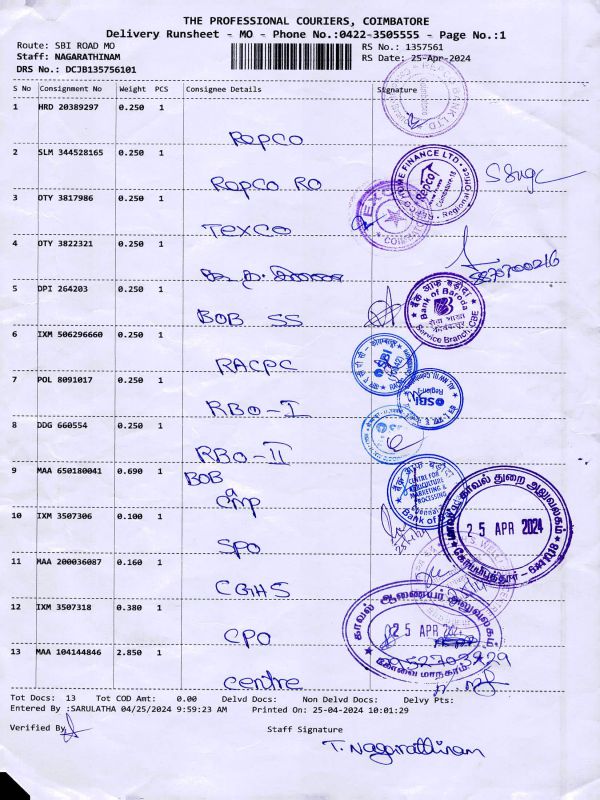 THE PROFESSIONAL COURIERS, COIMBATORE
Delivery Runsheet - MO - Phone No.:0422-3505555 - Page No.:1
Route: SBI ROAD MO
RS No.: 1357561
Staff: NAGARATHINAM
RS Date: 25-Apr-2024
DRS No.: DCJB135756101
S No Consignment No Weight PCS Consignee Details Signature
1 HRD 20389297 0.250 1
Repco
2 SLM 344528165 0.250 1
Repco RO
HOME FINANCE LTD.
Repco
Coimbatore-18
Regional Office
3 OTY 3817986 0.250 1
TEXCO
4 OTY 3822321 0.250 1
5 DPI 264203 0.250 1
BOB SS
बैंक ऑफ़ बड़ौदा
Bank of Baroda
Service Branch, CBE
6 IXM 506296660 0.250 1
RACPC
SBI
7 POL 8091017 0.250 1
RBO-I
SBI
8 DDG 660554 0.250 1
RBO-II
9 MAA 650180041 0.690 1
BOB
CMP
CENTRE FOR
AGRICULTURE
MARKETING &
PROCESSING
Bank of
10 IXM 3507306 0.100 1
SPO
காவல் துறை அலுவலகம்
25 APR 2024
கோயம்புத்தூர் - 641018
11 MAA 200036087 0.160 1
CGHS
12 IXM 3507318 0.380 1
CPO
காவல் ஆணையர் அலுவலகம்
25 APR 2024
கோவை மாநகரம்
13 MAA 104144846 2.850 1
centre
Tot Docs: 13 Tot COD Amt: 0.00 Delvd Docs: Non Delvd Docs: Delvy Pts:
Entered By :SARULATHA 04/25/2024 9:59:23 AM Printed On: 25-04-2024 10:01:29
Verified By
Staff Signature
T. Nagarathinam